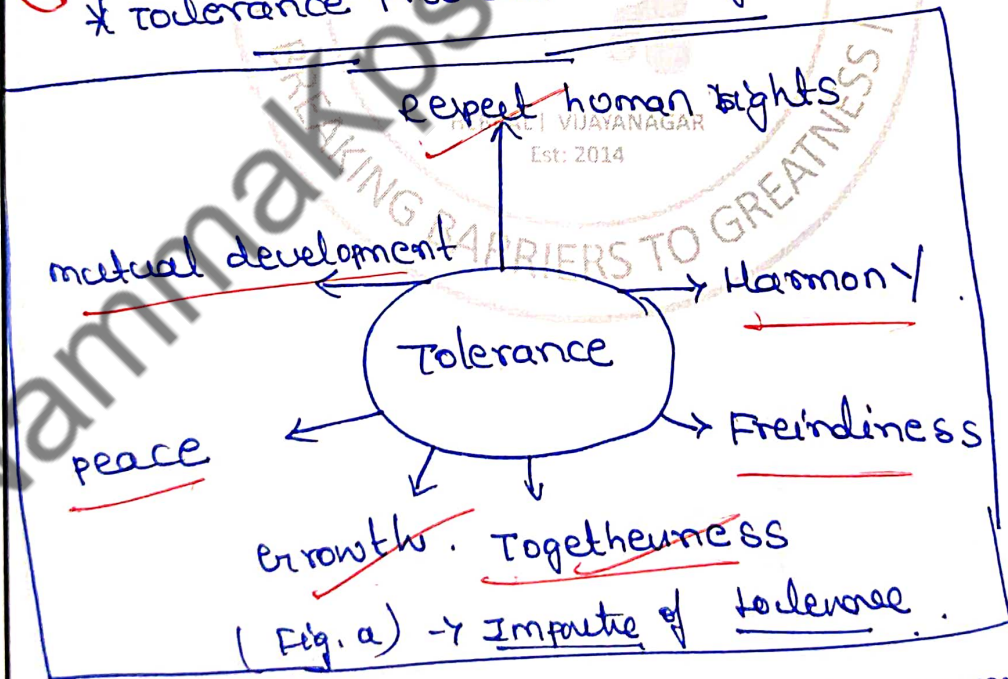 * Tolerance
respect human rights
VIJAYANAGAR
Est: 2014
BREAKING BARRIERS TO GREATNESS
mutual development
Harmony.
Tolerance
Freindiness
peace
Growth. Togetherness
(Fig. a) → Impactie of tolerance.
ammakps